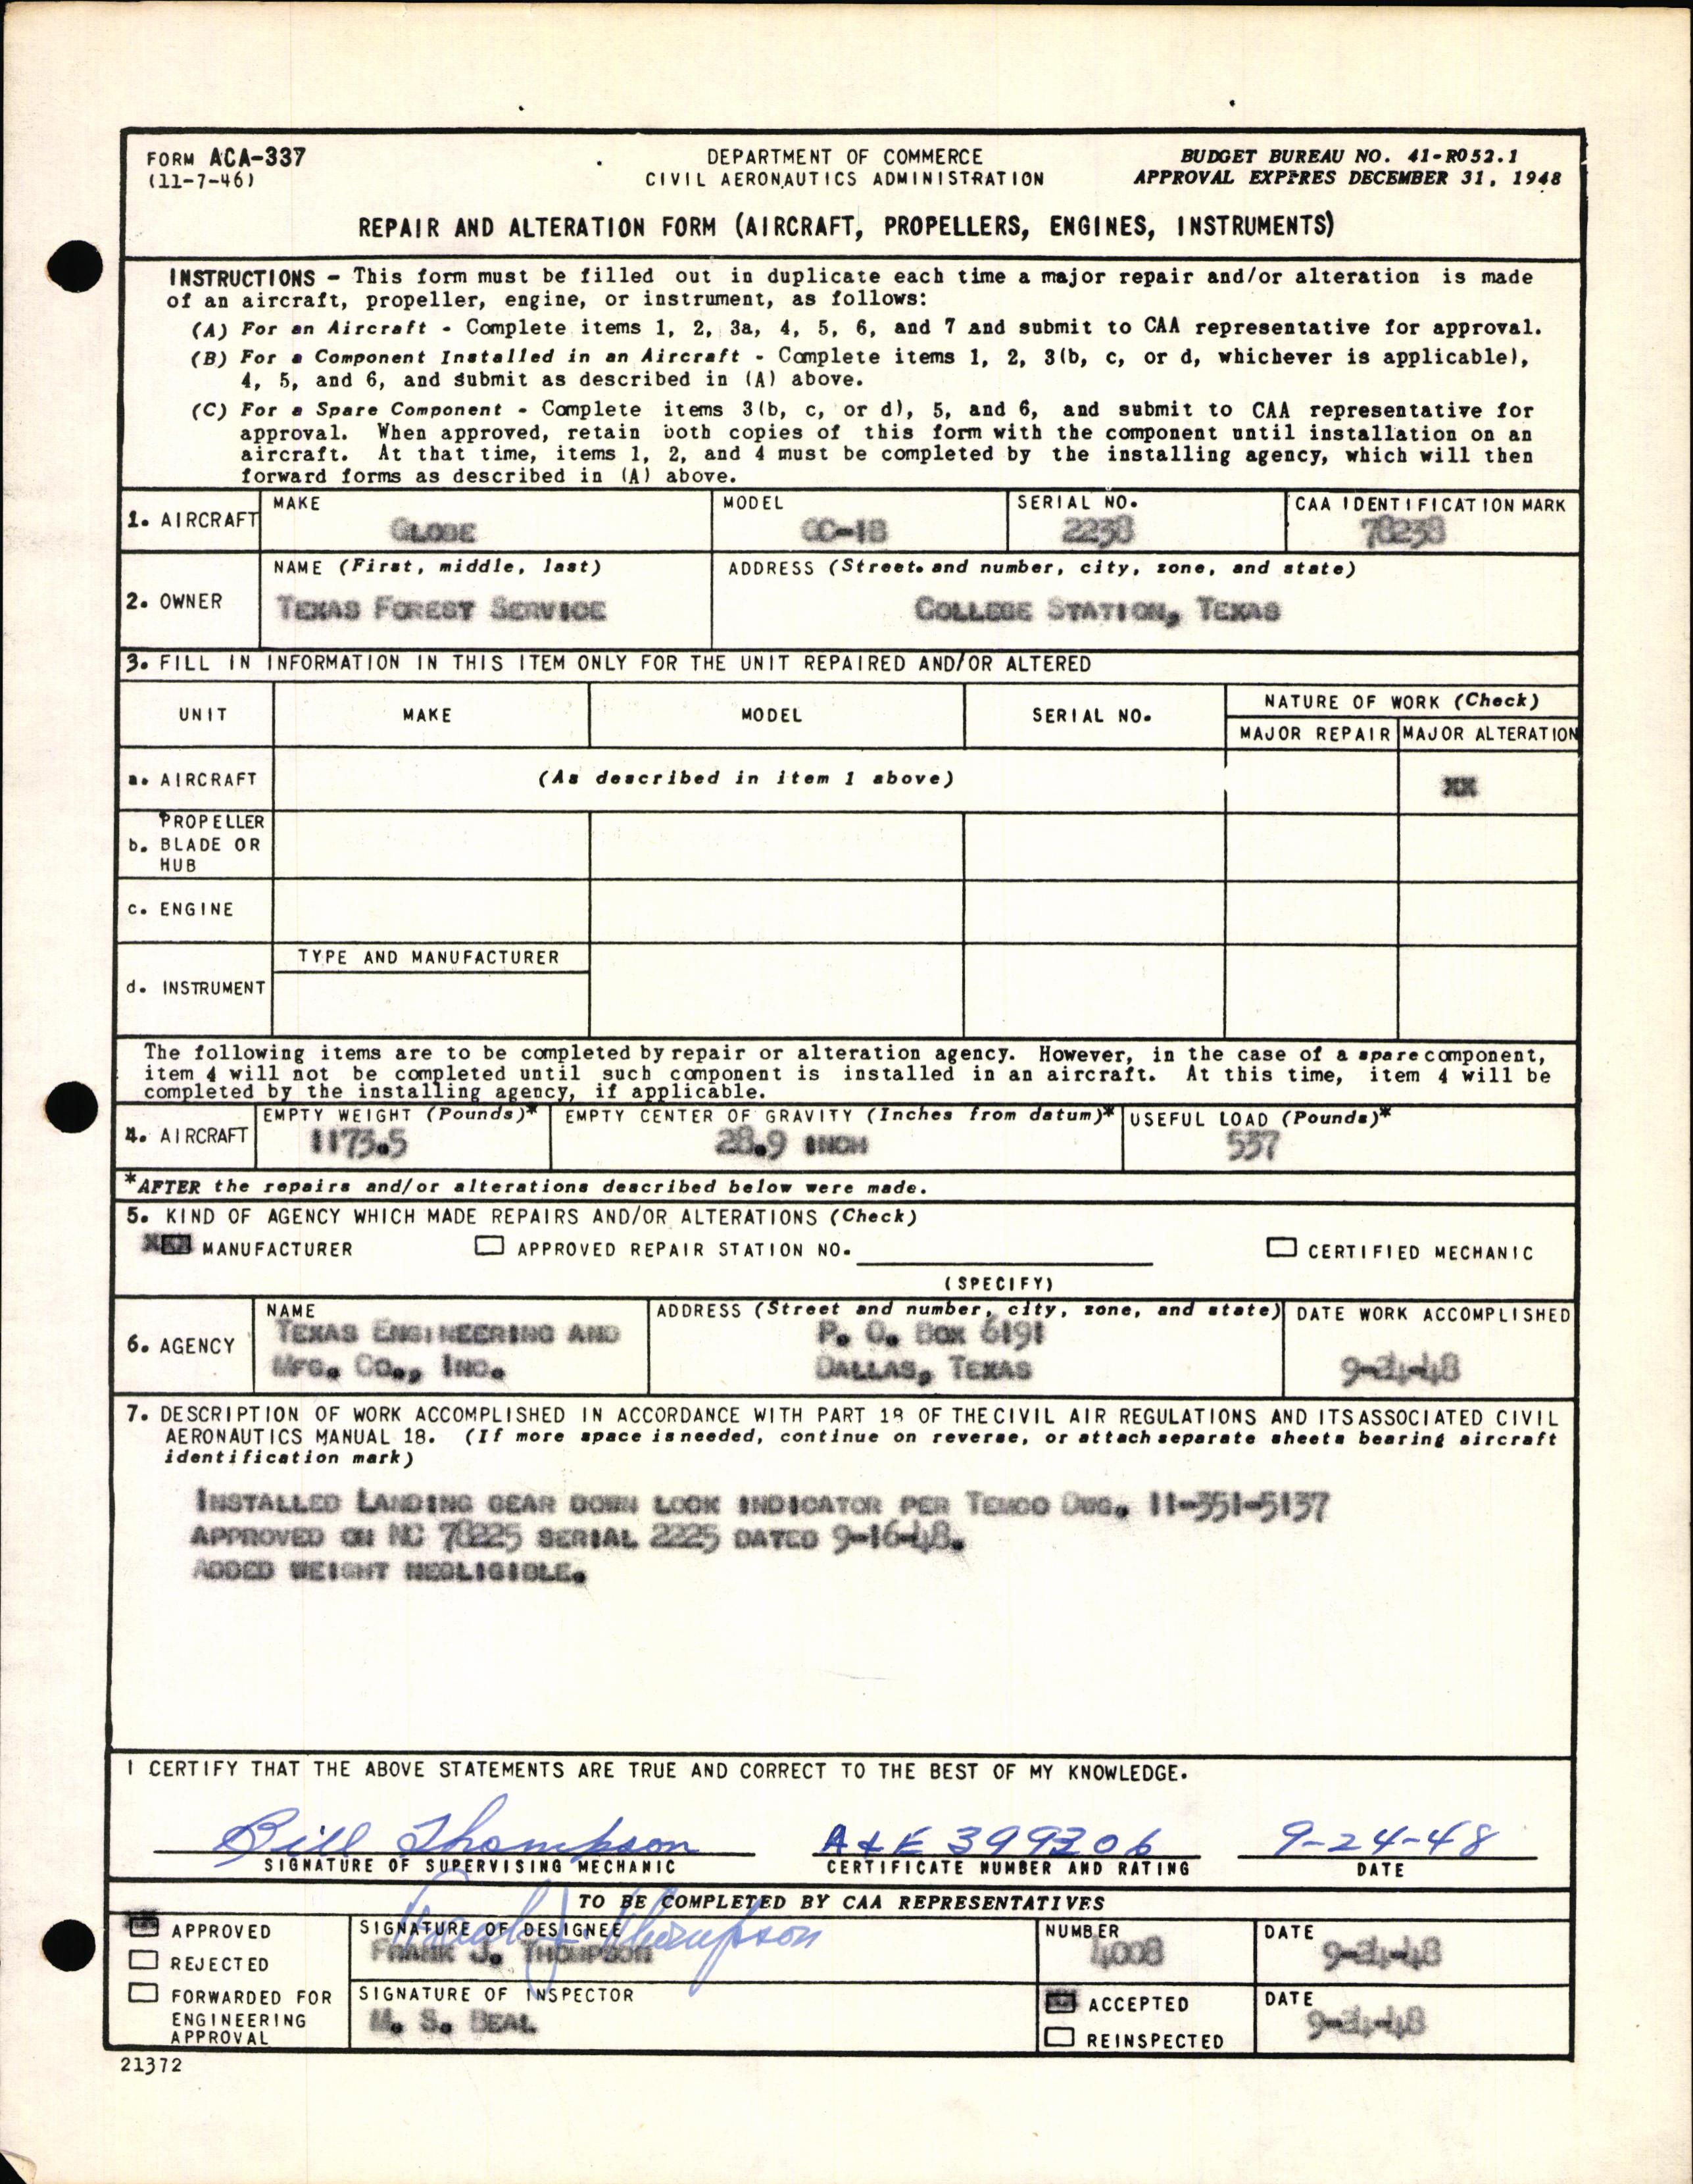 FORM ACA-337
(11-7-46)
DEPARTMENT OF COMMERCE
CIVIL AERONAUTICS ADMINISTRATION
BUDGET BUREAU NO. 41-R052.1
APPROVAL EXPIRES DECEMBER 31, 1948
REPAIR AND ALTERATION FORM (AIRCRAFT, PROPELLERS, ENGINES, INSTRUMENTS)
INSTRUCTIONS - This form must be filled out in duplicate each time a major repair and/or alteration is made
of an aircraft, propeller, engine, or instrument, as follows:
(A) For an Aircraft - Complete items 1, 2, 3a, 4, 5, 6, and 7 and submit to CAA representative for approval.
(B) For a Component Installed in an Aircraft - Complete items 1, 2, 3(b, c, or d, whichever is applicable),
4, 5, and 6, and submit as described in (A) above.
(C) For a Spare Component - Complete items 3(b, c, or d), 5, and 6, and submit to CAA representative for
approval. When approved, retain both copies of this form with the component until installation on an
aircraft. At that time, items 1, 2, and 4 must be completed by the installing agency, which will then
forward forms as described in (A) above.
1. AIRCRAFT
MAKE
GLOBE
MODEL
GC-1B
SERIAL NO.
2238
CAA IDENTIFICATION MARK
78238
2. OWNER
NAME (First, middle, last)
TEXAS FOREST SERVICE
ADDRESS (Street and number, city, zone, and state)
COLLEGE STATION, TEXAS
3. FILL IN INFORMATION IN THIS ITEM ONLY FOR THE UNIT REPAIRED AND/OR ALTERED
UNIT
MAKE
MODEL
SERIAL NO.
NATURE OF WORK (Check)
MAJOR REPAIR
MAJOR ALTERATION
a. AIRCRAFT
(As described in item 1 above)
XX
PROPELLER
b. BLADE OR
HUB
c. ENGINE
d. INSTRUMENT
TYPE AND MANUFACTURER
The following items are to be completed by repair or alteration agency. However, in the case of a spare component,
item 4 will not be completed until such component is installed in an aircraft. At this time, item 4 will be
completed by the installing agency, if applicable.
4. AIRCRAFT
EMPTY WEIGHT (Pounds)*
1173.5
EMPTY CENTER OF GRAVITY (Inches from datum)*
28.9 INCH
USEFUL LOAD (Pounds)*
537
*AFTER the repairs and/or alterations described below were made.
5. KIND OF AGENCY WHICH MADE REPAIRS AND/OR ALTERATIONS (Check)
XXX MANUFACTURER
APPROVED REPAIR STATION NO.
(SPECIFY)
CERTIFIED MECHANIC
6. AGENCY
NAME
TEXAS ENGINEERING AND
MFG. CO., INC.
ADDRESS (Street and number, city, zone, and state)
P. O. BOX 6191
DALLAS, TEXAS
DATE WORK ACCOMPLISHED
9-24-48
7. DESCRIPTION OF WORK ACCOMPLISHED IN ACCORDANCE WITH PART 18 OF THE CIVIL AIR REGULATIONS AND ITS ASSOCIATED CIVIL
AERONAUTICS MANUAL 18. (If more space is needed, continue on reverse, or attach separate sheets bearing aircraft
identification mark)
INSTALLED LANDING GEAR DOWN LOCK INDICATOR PER TEMCO DWG. 11-351-5137
APPROVED ON NC 78225 SERIAL 2225 DATED 9-16-48.
ADDED WEIGHT NEGLIGIBLE.
I CERTIFY THAT THE ABOVE STATEMENTS ARE TRUE AND CORRECT TO THE BEST OF MY KNOWLEDGE.
Bill Thompson
SIGNATURE OF SUPERVISING MECHANIC
A & E 399306
CERTIFICATE NUMBER AND RATING
9-24-48
DATE
TO BE COMPLETED BY CAA REPRESENTATIVES
APPROVED
REJECTED
FORWARDED FOR
ENGINEERING
APPROVAL
SIGNATURE OF DESIGNEE
Frank J. Thompson
FRANK J. THOMPSON
NUMBER
4008
DATE
9-24-48
SIGNATURE OF INSPECTOR
M. S. BEAL
ACCEPTED
REINSPECTED
DATE
9-24-48
21372